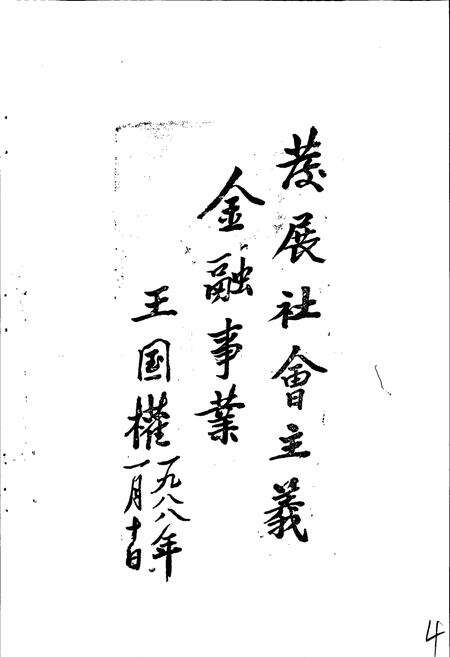 發展社會主義
金融事業
王国權
一九八八年
一月十日
4